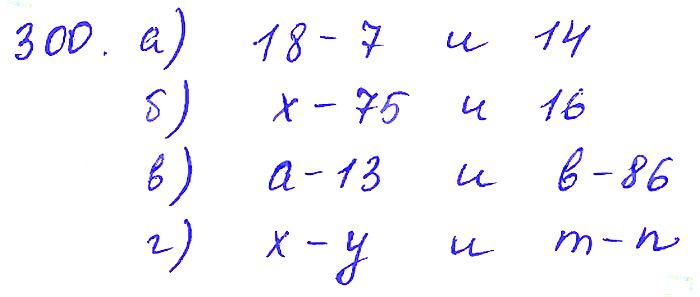 300. а) 18 - 7 и 14
б) x - 75 и 16
в) a - 13 и в - 86
г) x - y и m - n